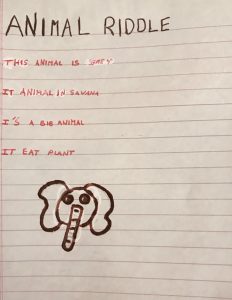 ANIMAL RIDDLE
THIS ANIMAL IS GREY
IT ANIMAL IN SAVANA
I'S A BIG ANIMAL
IT EAT PLANT